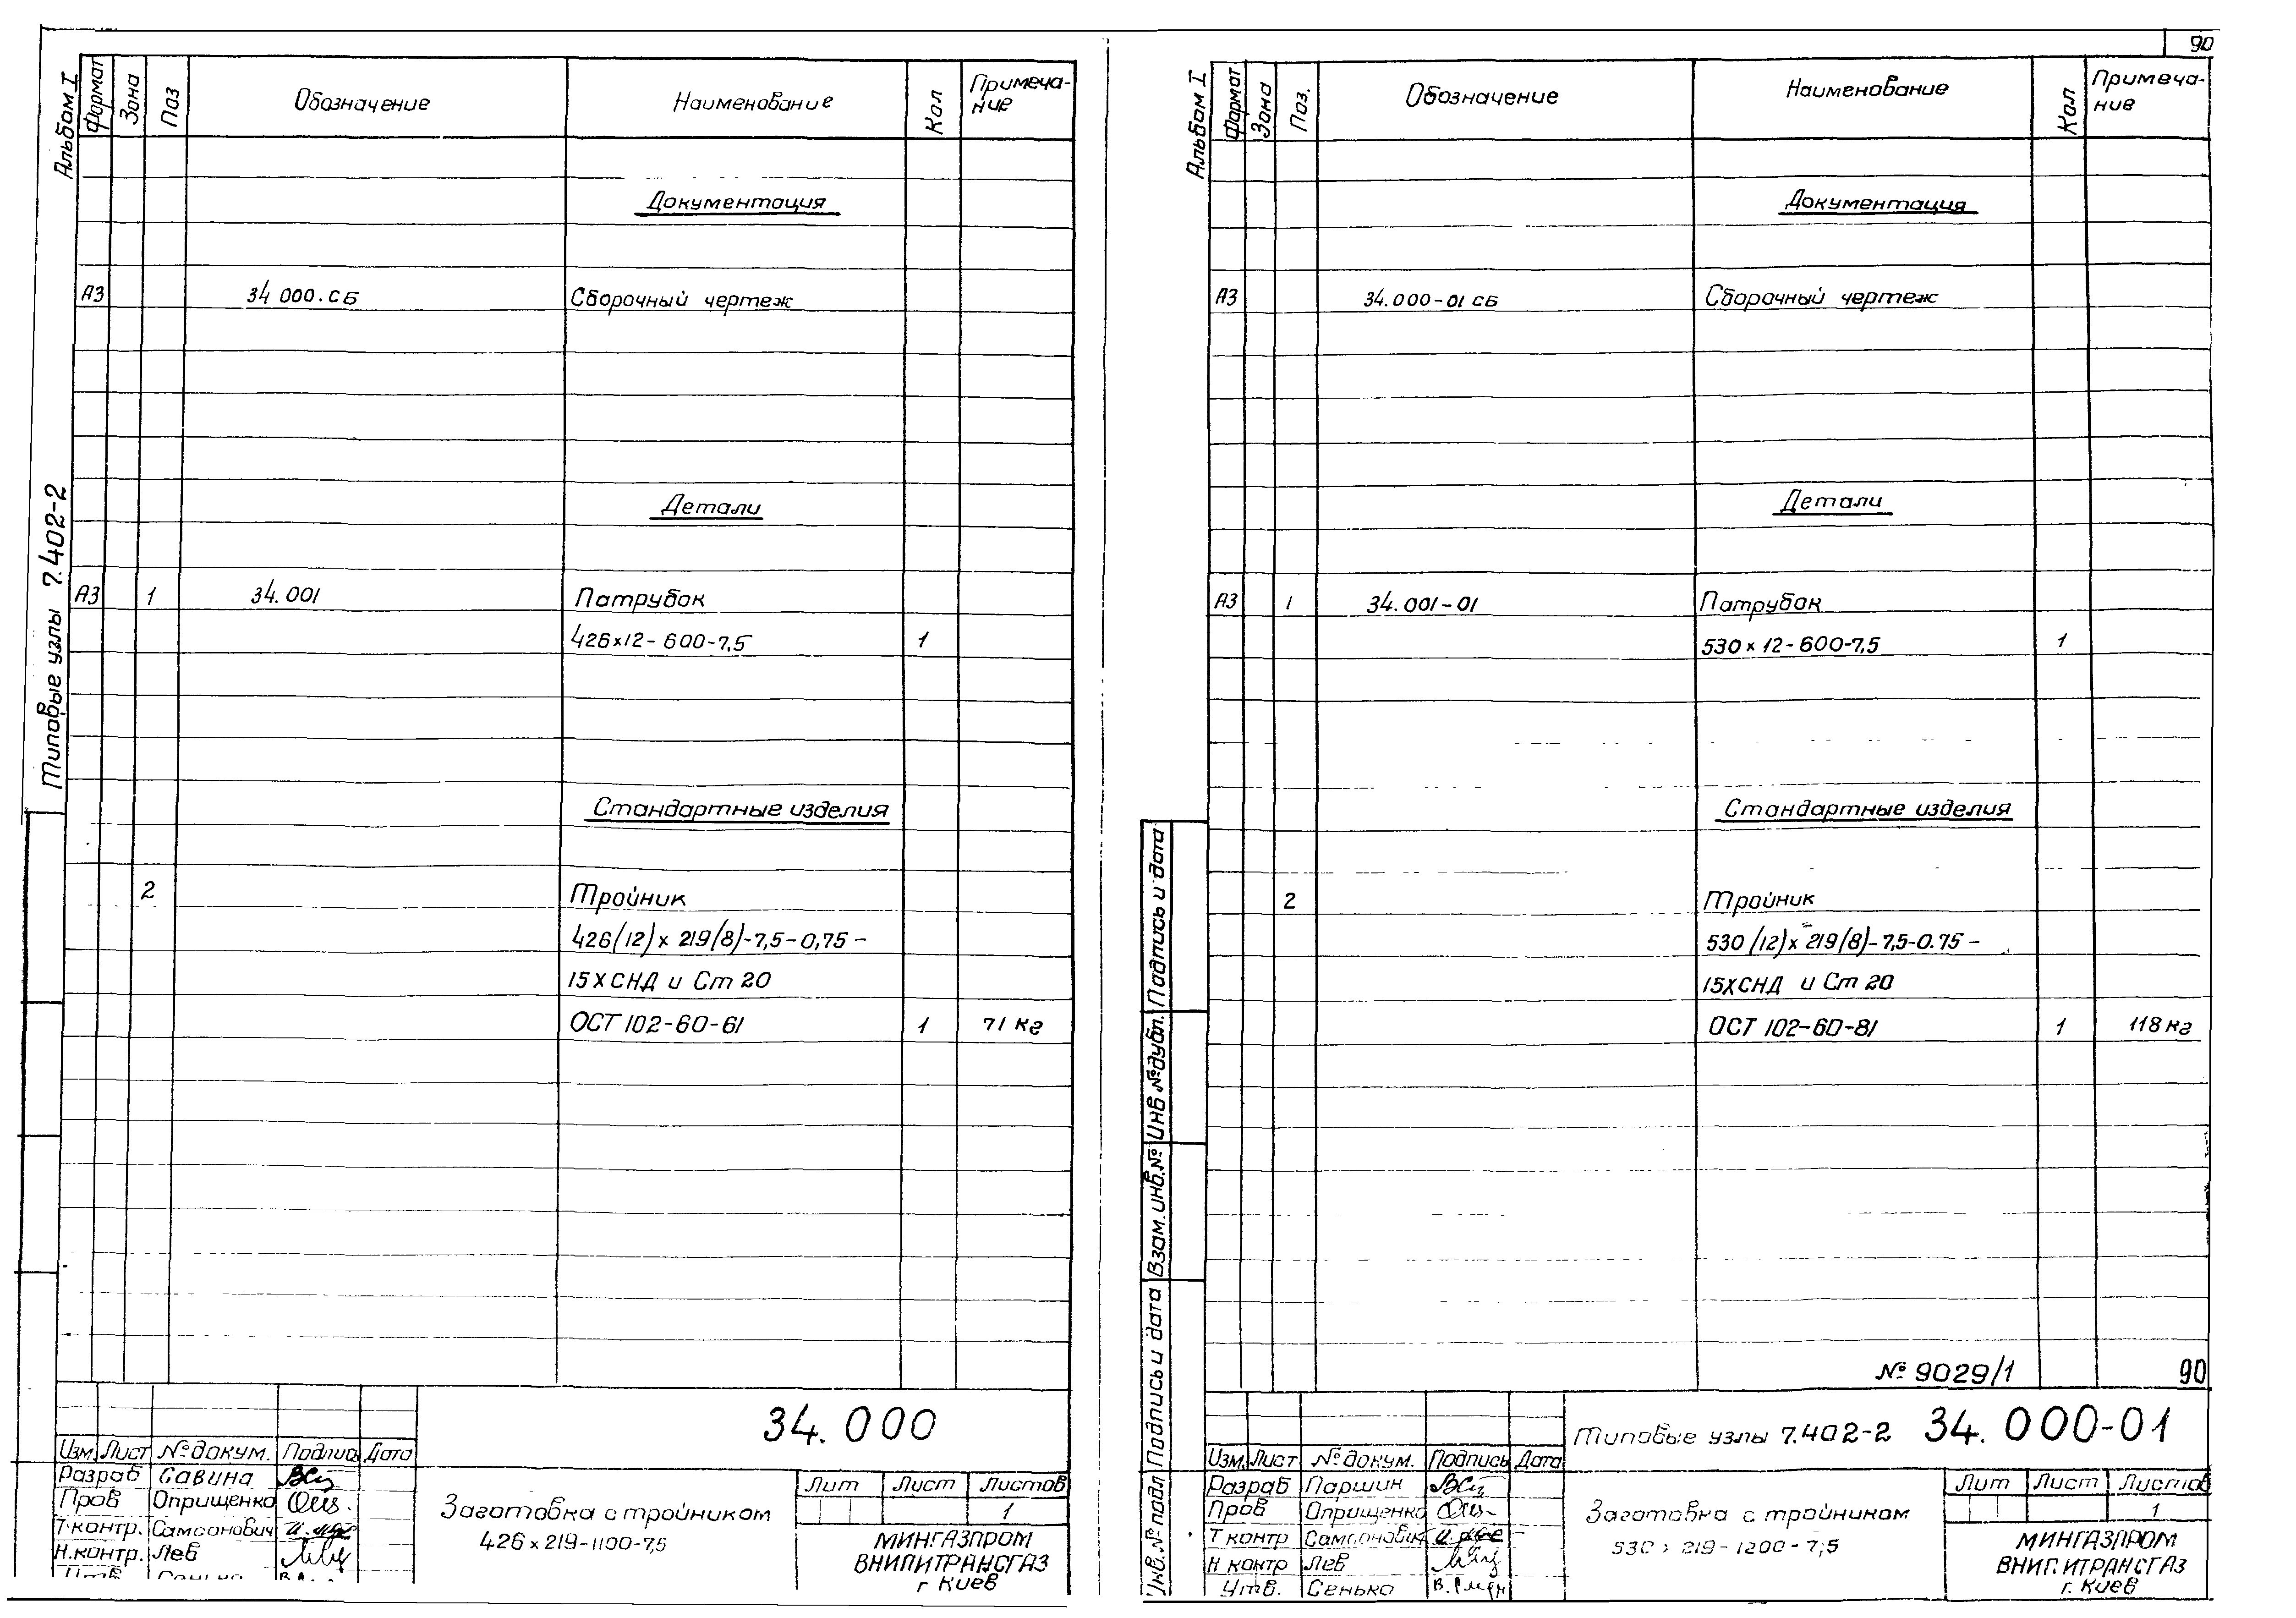 90
Альбом I
Типовые узлы 7.402-2
Формат Зона Поз Обозначение Наименование Кол Примеча-
ние
Документация
А3 34 000.СБ Сборочный чертеж
Детали
А3 1 34.001 Патрубок
426х12-600-7,5 1
Стандартные изделия
2 Тройник
426(12)х219(8)-7,5-0,75-
15ХСНД и Ст 20
ОСТ 102-60-61 1 71 кг
34.000
Изм. Лист № докум. Подпись Дата
Разраб Савина
Пров Оприщенко
Т.контр. Самсонович
Н.контр. Лев
Заготовка с тройником
426х219-1100-7,5
Лит Лист Листов
1
МИНГАЗПРОМ
ВНИПИТРАНСГАЗ
г Киев
Альбом I
Формат Зона Поз. Обозначение Наименование Кол Примеча-
ние
Документация
А3 34.000-01 СБ Сборочный чертеж
Детали
А3 1 34.001-01 Патрубок
530х12-600-7,5 1
Стандартные изделия
2 Тройник
530(12)х219(8)-7,5-0.75-
15ХСНД и Ст 20
ОСТ 102-60-81 1 118 кг
№ 9029/1 90
Инв.№ подл Подпись и дата Взам.инв.№ Инв №дубл. Подпись и дата
Типовые узлы 7.402-2 34.000-01
Изм. Лист № докум. Подпись Дата
Разраб Паршин
Пров Оприщенко
Т контр Самсонович
Н контр Лев
Утв. Сенько
Заготовка с тройником
530х219-1200-7,5
Лит Лист Листов
1
МИНГАЗПРОМ
ВНИПИТРАНСГАЗ
г. Киев